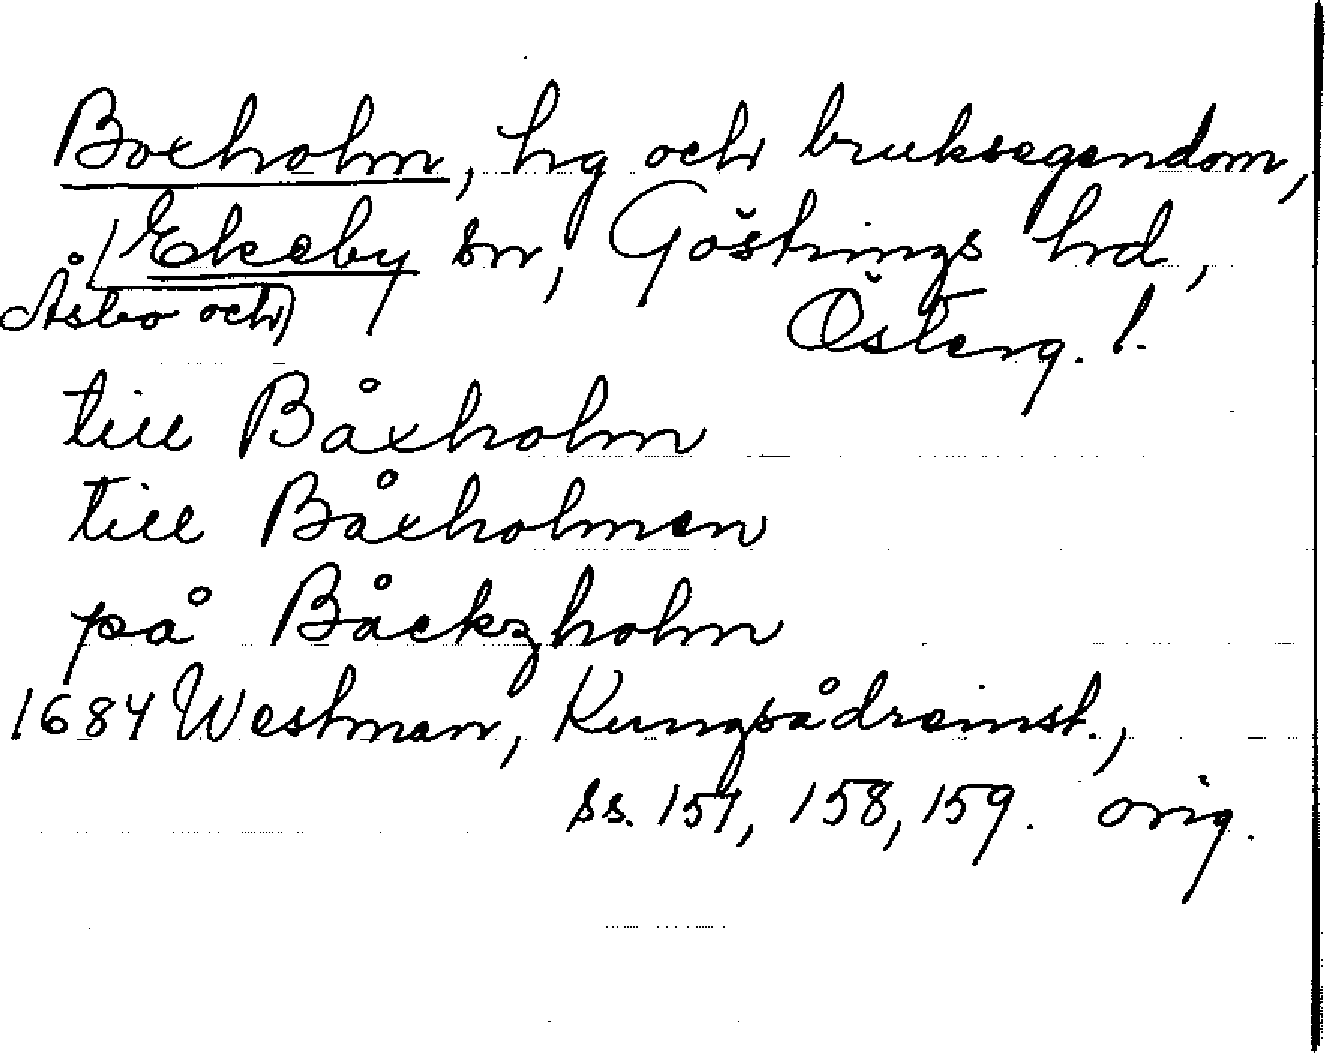 Boxholm, hg och bruksegendom,
Åsbo och Ekeby sn, Göstrings hd,
Österg. l.
till Båxholm
till Båxholmen
på Båckzholm
1684 Westman, Kungsådreinst.,
ss. 157, 158, 159. orig.